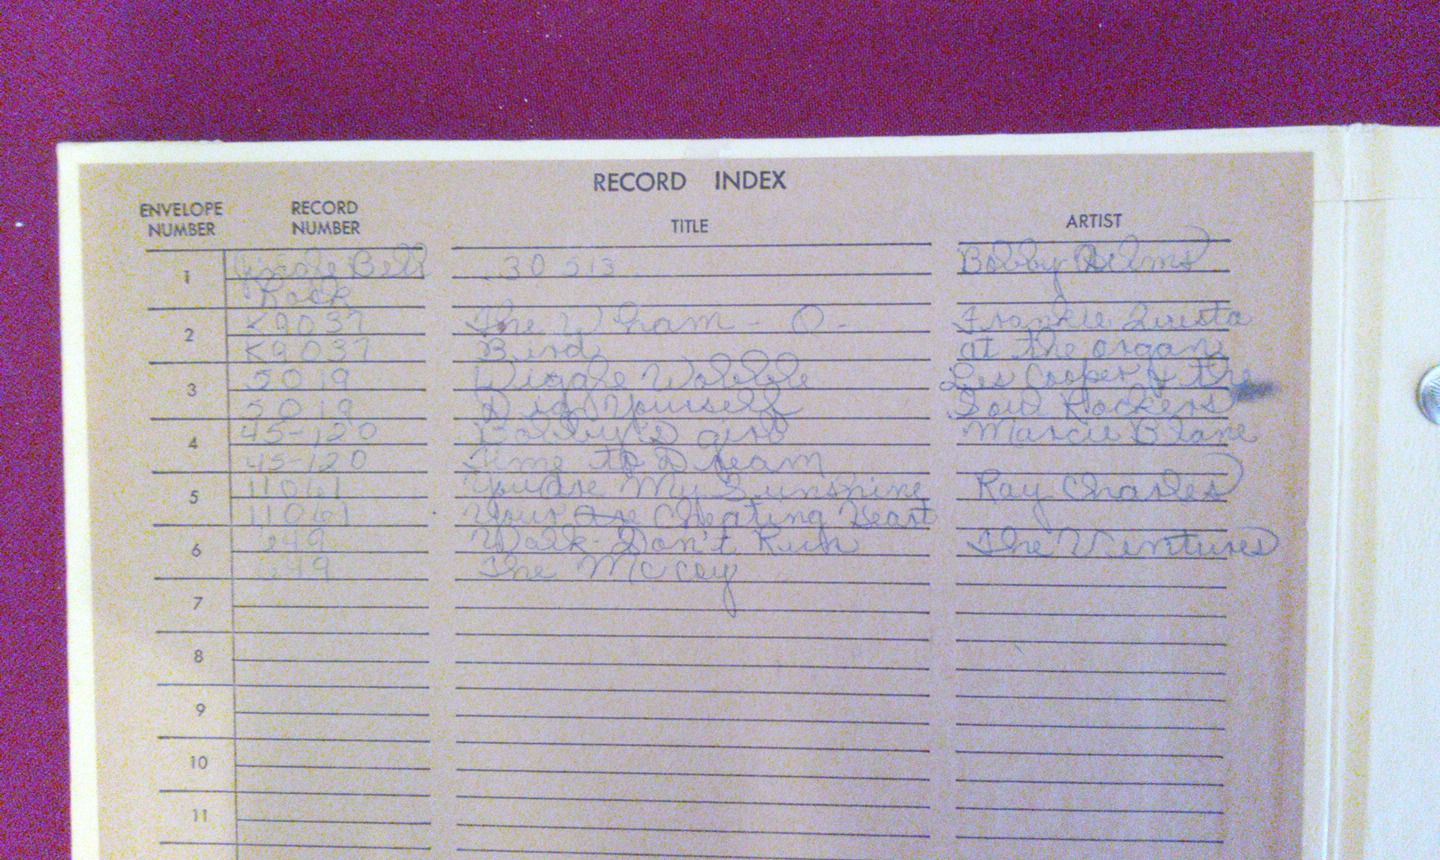 RECORD INDEX
ENVELOPE NUMBER RECORD NUMBER TITLE ARTIST
1 Jingle Bell 30513 Bobby Helms
Rock
2 K9037 The Wham-O- Frankie
K9037 Bird at the organ
3 5019 Wiggle Wobble Les Cooper & the
5019 Dig Yourself Soul Rockers
4 45-120 Bobby's girl Marcie Blane
45-120 Time to Dream
5 11061 You are My Sunshine Ray Charles
11061 Your Are Cheating Heart
6 649 Walk-Don't Run The Ventures
649 The McCoy
7
8
9
10
11